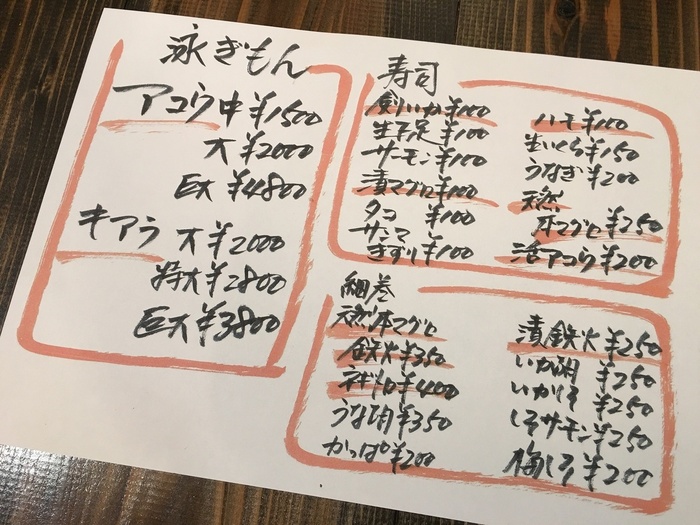 泳ぎもん
アコウ中¥1500
大¥2000
巨大¥4800
キアラ 大¥2000
特大¥2800
巨大¥3800
寿司
剣いか¥100
生下足¥100
サーモン¥100
漬マグロ¥100
タコ ¥100
サンマ
きずし¥100
ハモ¥100
生いくら¥150
うなぎ¥200
天然
本マグロ¥250
活アコウ¥200
細巻
天然本マグロ
鉄火¥350
ネギトロ¥400
うな胡¥350
かっぱ¥200
漬鉄火¥250
いか胡 ¥250
いかしそ ¥250
しそサーモン¥250
梅しそ¥200